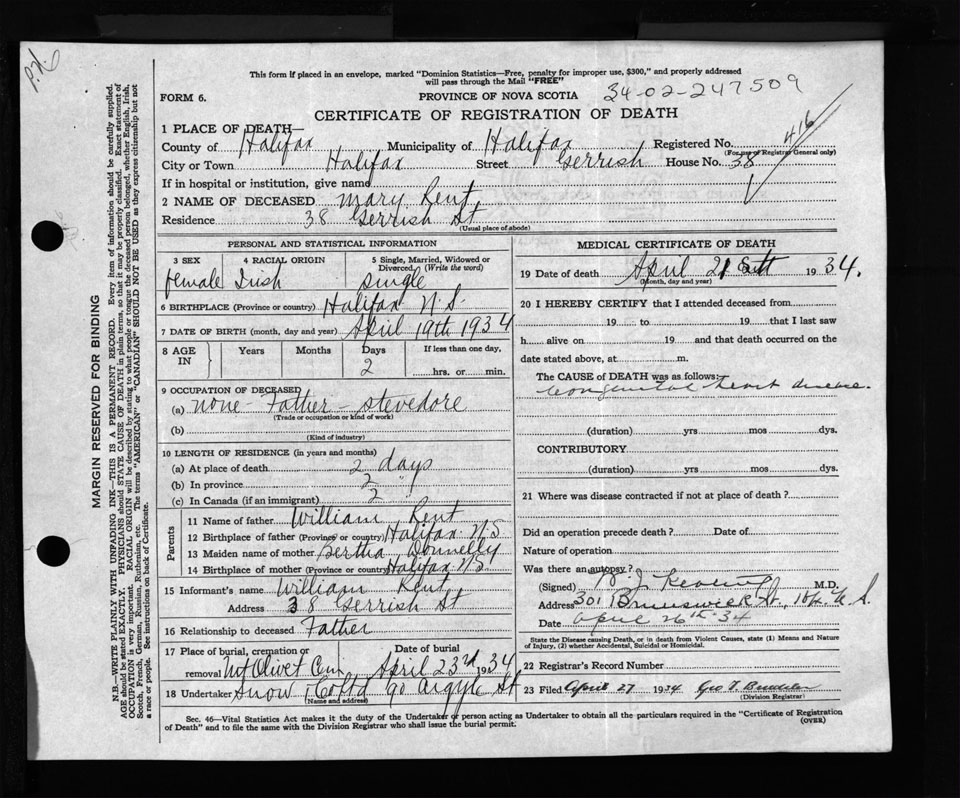 P.K.
This form if placed in an envelope, marked "Dominion Statistics—Free, penalty for improper use, $300," and properly addressed
will pass through the Mail "FREE"
FORM 6.
PROVINCE OF NOVA SCOTIA
34-02-247509
CERTIFICATE OF REGISTRATION OF DEATH
416
1 PLACE OF DEATH—
County of Halifax Municipality of Halifax Registered No.
(For use of Registrar General only)
City or Town Halifax Street Gerrish House No. 38
If in hospital or institution, give name
2 NAME OF DECEASED Mary Kent
Residence 38 Gerrish St
(Usual place of abode)
PERSONAL AND STATISTICAL INFORMATION
3 SEX 4 RACIAL ORIGIN 5 Single, Married, Widowed or
Divorced. (Write the word)
female Irish single
6 BIRTHPLACE (Province or country) Halifax N.S.
7 DATE OF BIRTH (month, day and year) April 19th 1934
8 AGE IN Years Months Days If less than one day,
2 hrs. or min.
9 OCCUPATION OF DECEASED
(a) none - Father - stevedore
(Trade or occupation or kind of work)
(b)
(Kind of industry)
10 LENGTH OF RESIDENCE (in years and months)
(a) At place of death 2 days
(b) In province 2 "
(c) In Canada (if an immigrant) 2
Parents
11 Name of father William Kent
12 Birthplace of father (Province or country) Halifax N.S
13 Maiden name of mother Bertha Donnelly
14 Birthplace of mother (Province or country) Halifax N.S.
15 Informant's name William Kent
Address 38 Gerrish St
16 Relationship to deceased Father
17 Place of burial, cremation or Date of burial
removal Mt Olivet Cem April 23rd 1934
18 Undertaker Snow & Co Ltd 90 Argyle St
(Name and address)
MEDICAL CERTIFICATE OF DEATH
19 Date of death April 21 1934.
(Month, day and year)
20 I HEREBY CERTIFY that I attended deceased from
19 to 19 that I last saw
h alive on 19 and that death occurred on the
date stated above, at m.
The CAUSE of DEATH was as follows:
Congenital heart disease.
(duration) yrs mos dys.
CONTRIBUTORY
(duration) yrs mos dys.
21 Where was disease contracted if not at place of death?
Did an operation precede death? Date of
Nature of operation
Was there an autopsy?
(Signed) M.D.
Address 301 Brunswick St., Hfx N.S.
Date April 26th 34
State the Disease causing Death, or in death from Violent Causes, state (1) Means and Nature
of Injury, (2) whether Accidental, Suicidal or Homicidal.
22 Registrar's Record Number
23 Filed April 27 1934 Geo T.
(Division Registrar)
Sec. 46—Vital Statistics Act makes it the duty of the Undertaker or person acting as Undertaker to obtain all the particulars required in the "Certificate of Registration
of Death" and to file the same with the Division Registrar who shall issue the burial permit.
(OVER)
MARGIN RESERVED FOR BINDING
N.B.—WRITE PLAINLY WITH UNFADING INK—THIS IS A PERMANENT RECORD. Every item of information should be carefully supplied.
AGE should be stated EXACTLY. PHYSICIANS should STATE CAUSE OF DEATH in plain terms, so that it may be properly classified. Exact statement of
OCCUPATION is very important. RACIAL ORIGIN will be described by stating to what people or tongue the deceased person belonged, whether English, Irish,
Scotch, French, German, Russian, Ruthenian, etc. The terms "AMERICAN" or "CANADIAN" SHOULD NOT BE USED as they express citizenship but not
a race or people. See instructions on back of Certificate.